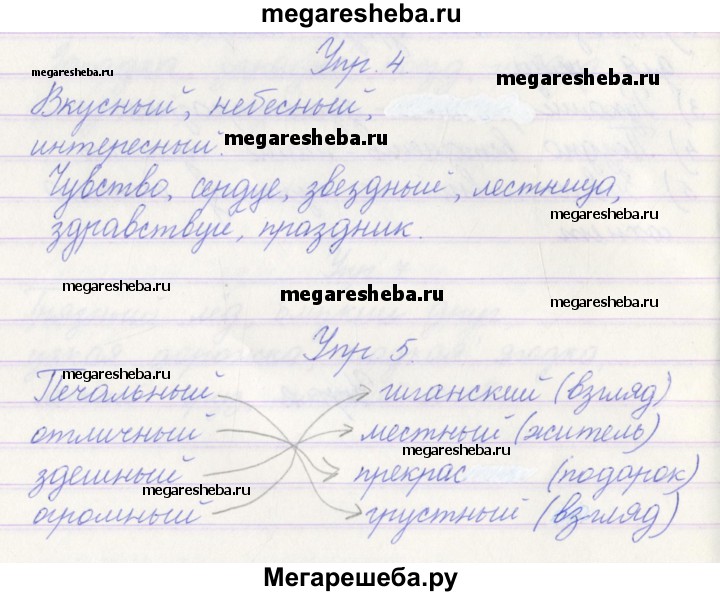 megaresheba.ru
Упр. 4.
megaresheba.ru
megaresheba.ru
Вкусный, небесный,
интересный.
megaresheba.ru
Чувство, сердце, звездный, лестница,
megaresheba.ru
здравствуй, праздник.
megaresheba.ru
megaresheba.ru
megaresheba.ru
Упр. 5.
megaresheba.ru
Печальный гиганский (взгляд)
отличный местный (житель)
megaresheba.ru
здешный прекрас (подарок)
megaresheba.ru
огромный грустный (взгляд)
Мегарешеба.ру